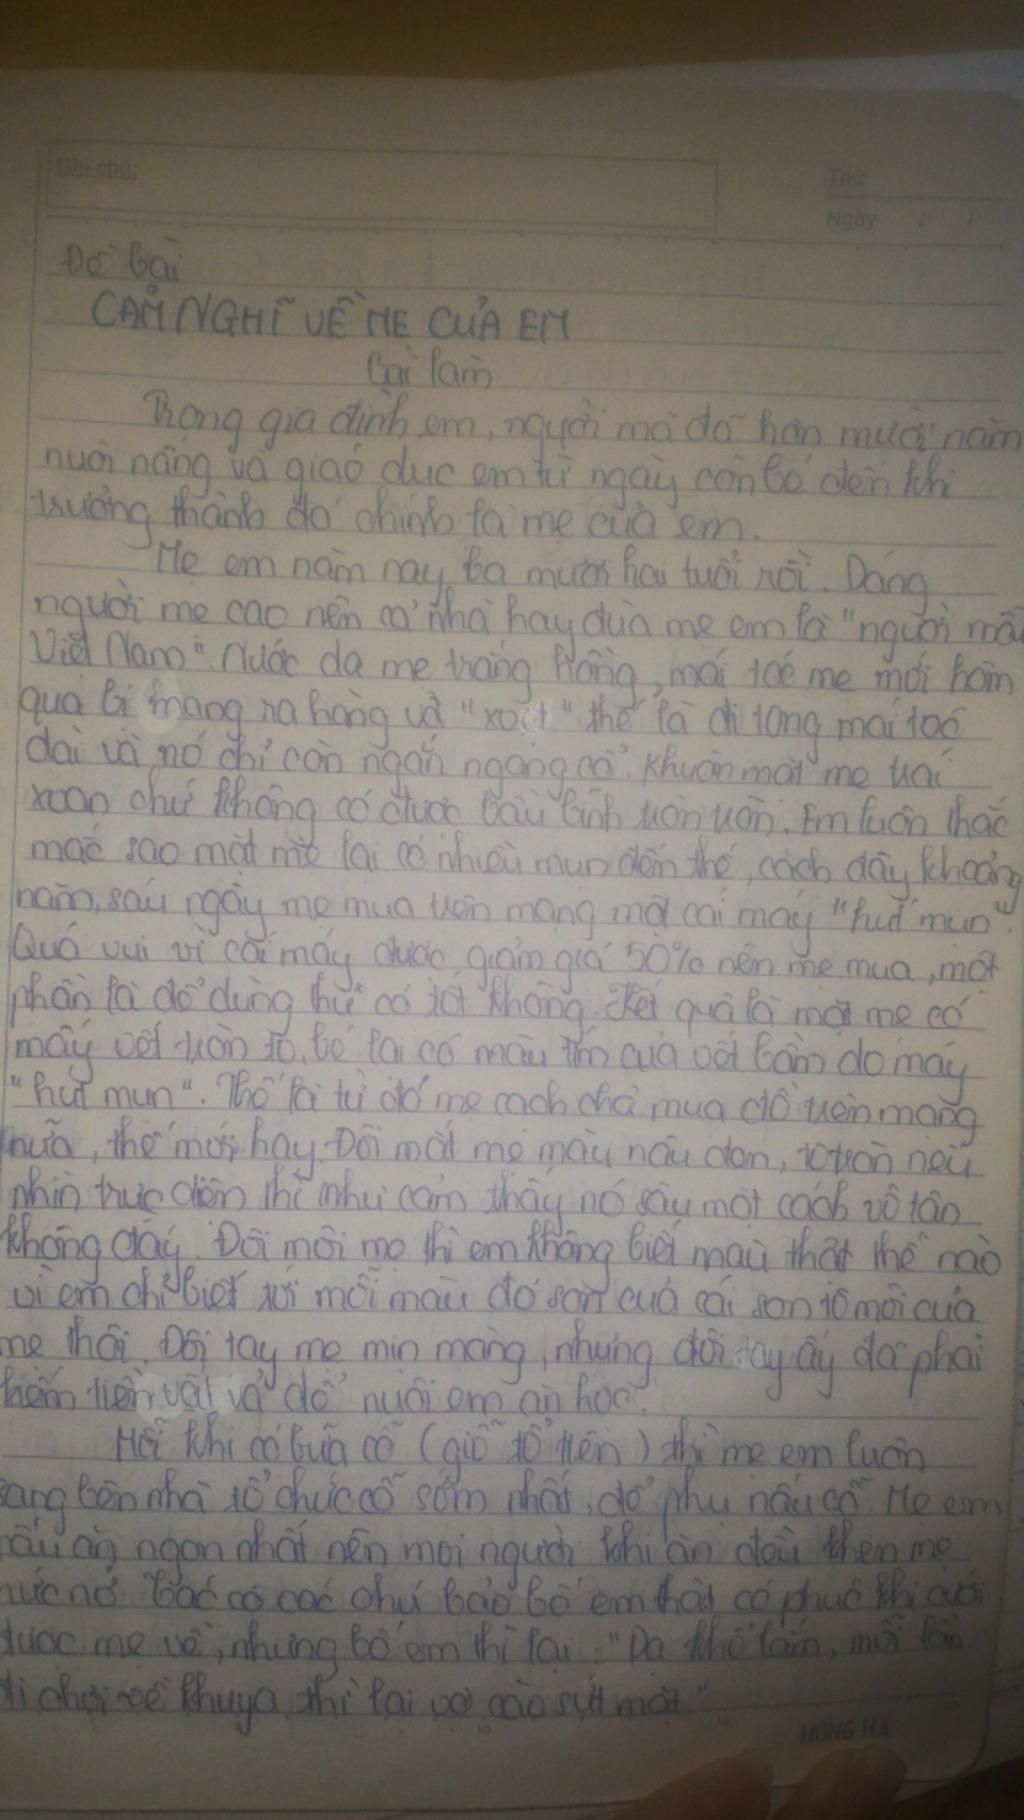 Ghi chú:
Thứ
Ngày / /
Đề bài
CẢM NGHĨ VỀ MẸ CỦA EM
Bài làm
Trong gia đình em, người mà đã hơn mười năm
nuôi nấng và giáo dục em từ ngày còn bé đến khi
trưởng thành đó chính là mẹ của em.
Mẹ em năm nay ba mươi hai tuổi rồi. Dáng
người mẹ cao nên cả nhà hay đùa mẹ em là "người mẫu
Việt Nam". Nước da mẹ trắng hồng, mái tóc mẹ mới hôm
qua bị mang ra hàng và "xoẹt" thế là đi tong mái tóc
dài và nó chỉ còn ngắn ngang cổ. Khuôn mặt mẹ trái
xoan chứ không có được bầu bĩnh tròn tròn. Em luôn thắc
mắc sao mặt mẹ lại có nhiều mụn đến thế, cách đây khoảng
năm, sáu ngày mẹ mua trên mạng một cái máy "hút mụn".
Quá vui vì cái máy được giảm giá 50% nên mẹ mua, một
phần là để dùng thử có tốt không. Kết quả là mặt mẹ có
mấy vết tròn to, bé lại có màu tím của vết bầm do máy
"hút mụn". Thế là từ đó mẹ cạch chả mua đồ trên mạng
nữa, thế mới hay. Đôi mắt mẹ màu nâu đen, to tròn nếu
nhìn trực diện thì như cảm thấy nó sâu một cách vô tận
không đáy. Đôi môi mẹ thì em không biết màu thật thế nào
vì em chỉ biết tới mỗi màu đỏ son của cái son tô môi của
mẹ thôi. Đôi tay mẹ mịn màng, nhưng đôi tay ấy đã phải
kiếm tiền vất vả để nuôi em ăn học.
Mỗi khi có bữa cỗ (giỗ tổ tiên) thì mẹ em luôn
sang bên nhà tổ chức cỗ sớm nhất, để phụ nấu cỗ. Mẹ em
nấu ăn ngon nhất nên mọi người khi ăn đều khen mẹ
nức nở. Bác cô các chú bảo bố em thật có phúc khi cưới
được mẹ về, nhưng bố em thì lại: "Dạ khổ lắm, mỗi lần
đi chơi về khuya thì lại vợ cào sứt mặt"
HONG HA